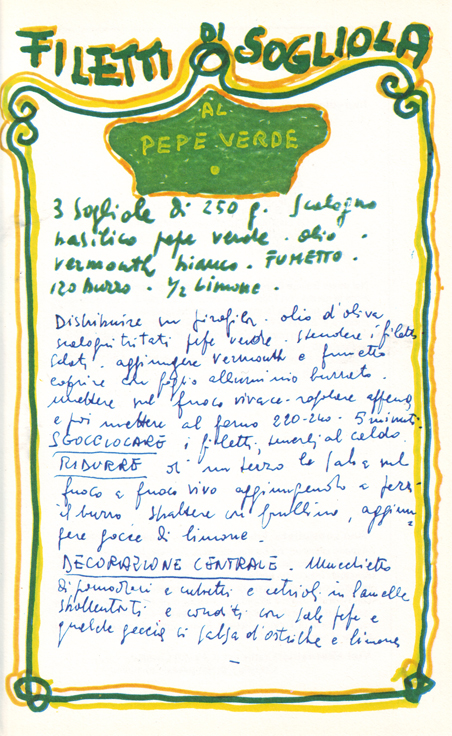 FILETTI DI SOGLIOLA
AL
PEPE VERDE
3 Sogliole di 250 g. Scalogno
basilico pepe verde. olio.
vermouth bianco. FUMETTO.
120 burro. 1/2 limone.
Distribuire in pirofila. olio d'oliva
scalogni tritati pepe verde. stendere i filetti
salati. aggiungere vermouth e fumetto
coprire con foglio alluminio burrato.
mettere sul fuoco vivace.
e poi mettere al forno 220-240. 5 minuti.
SGOCCIOLARE i filetti, tenerli al caldo.
RIDURRE di un terzo la salsa sul
fuoco a fuoco vivo aggiungendo a pezzi
il burro sbattere con frullino, aggiun=
gere gocce di limone.
DECORAZIONE CENTRALE. Mucchietto
di pomodori a cubetti e cetrioli in lamelle
sbollentati e conditi con sale pepe e
qualche goccia di salsa d'ostriche e limone